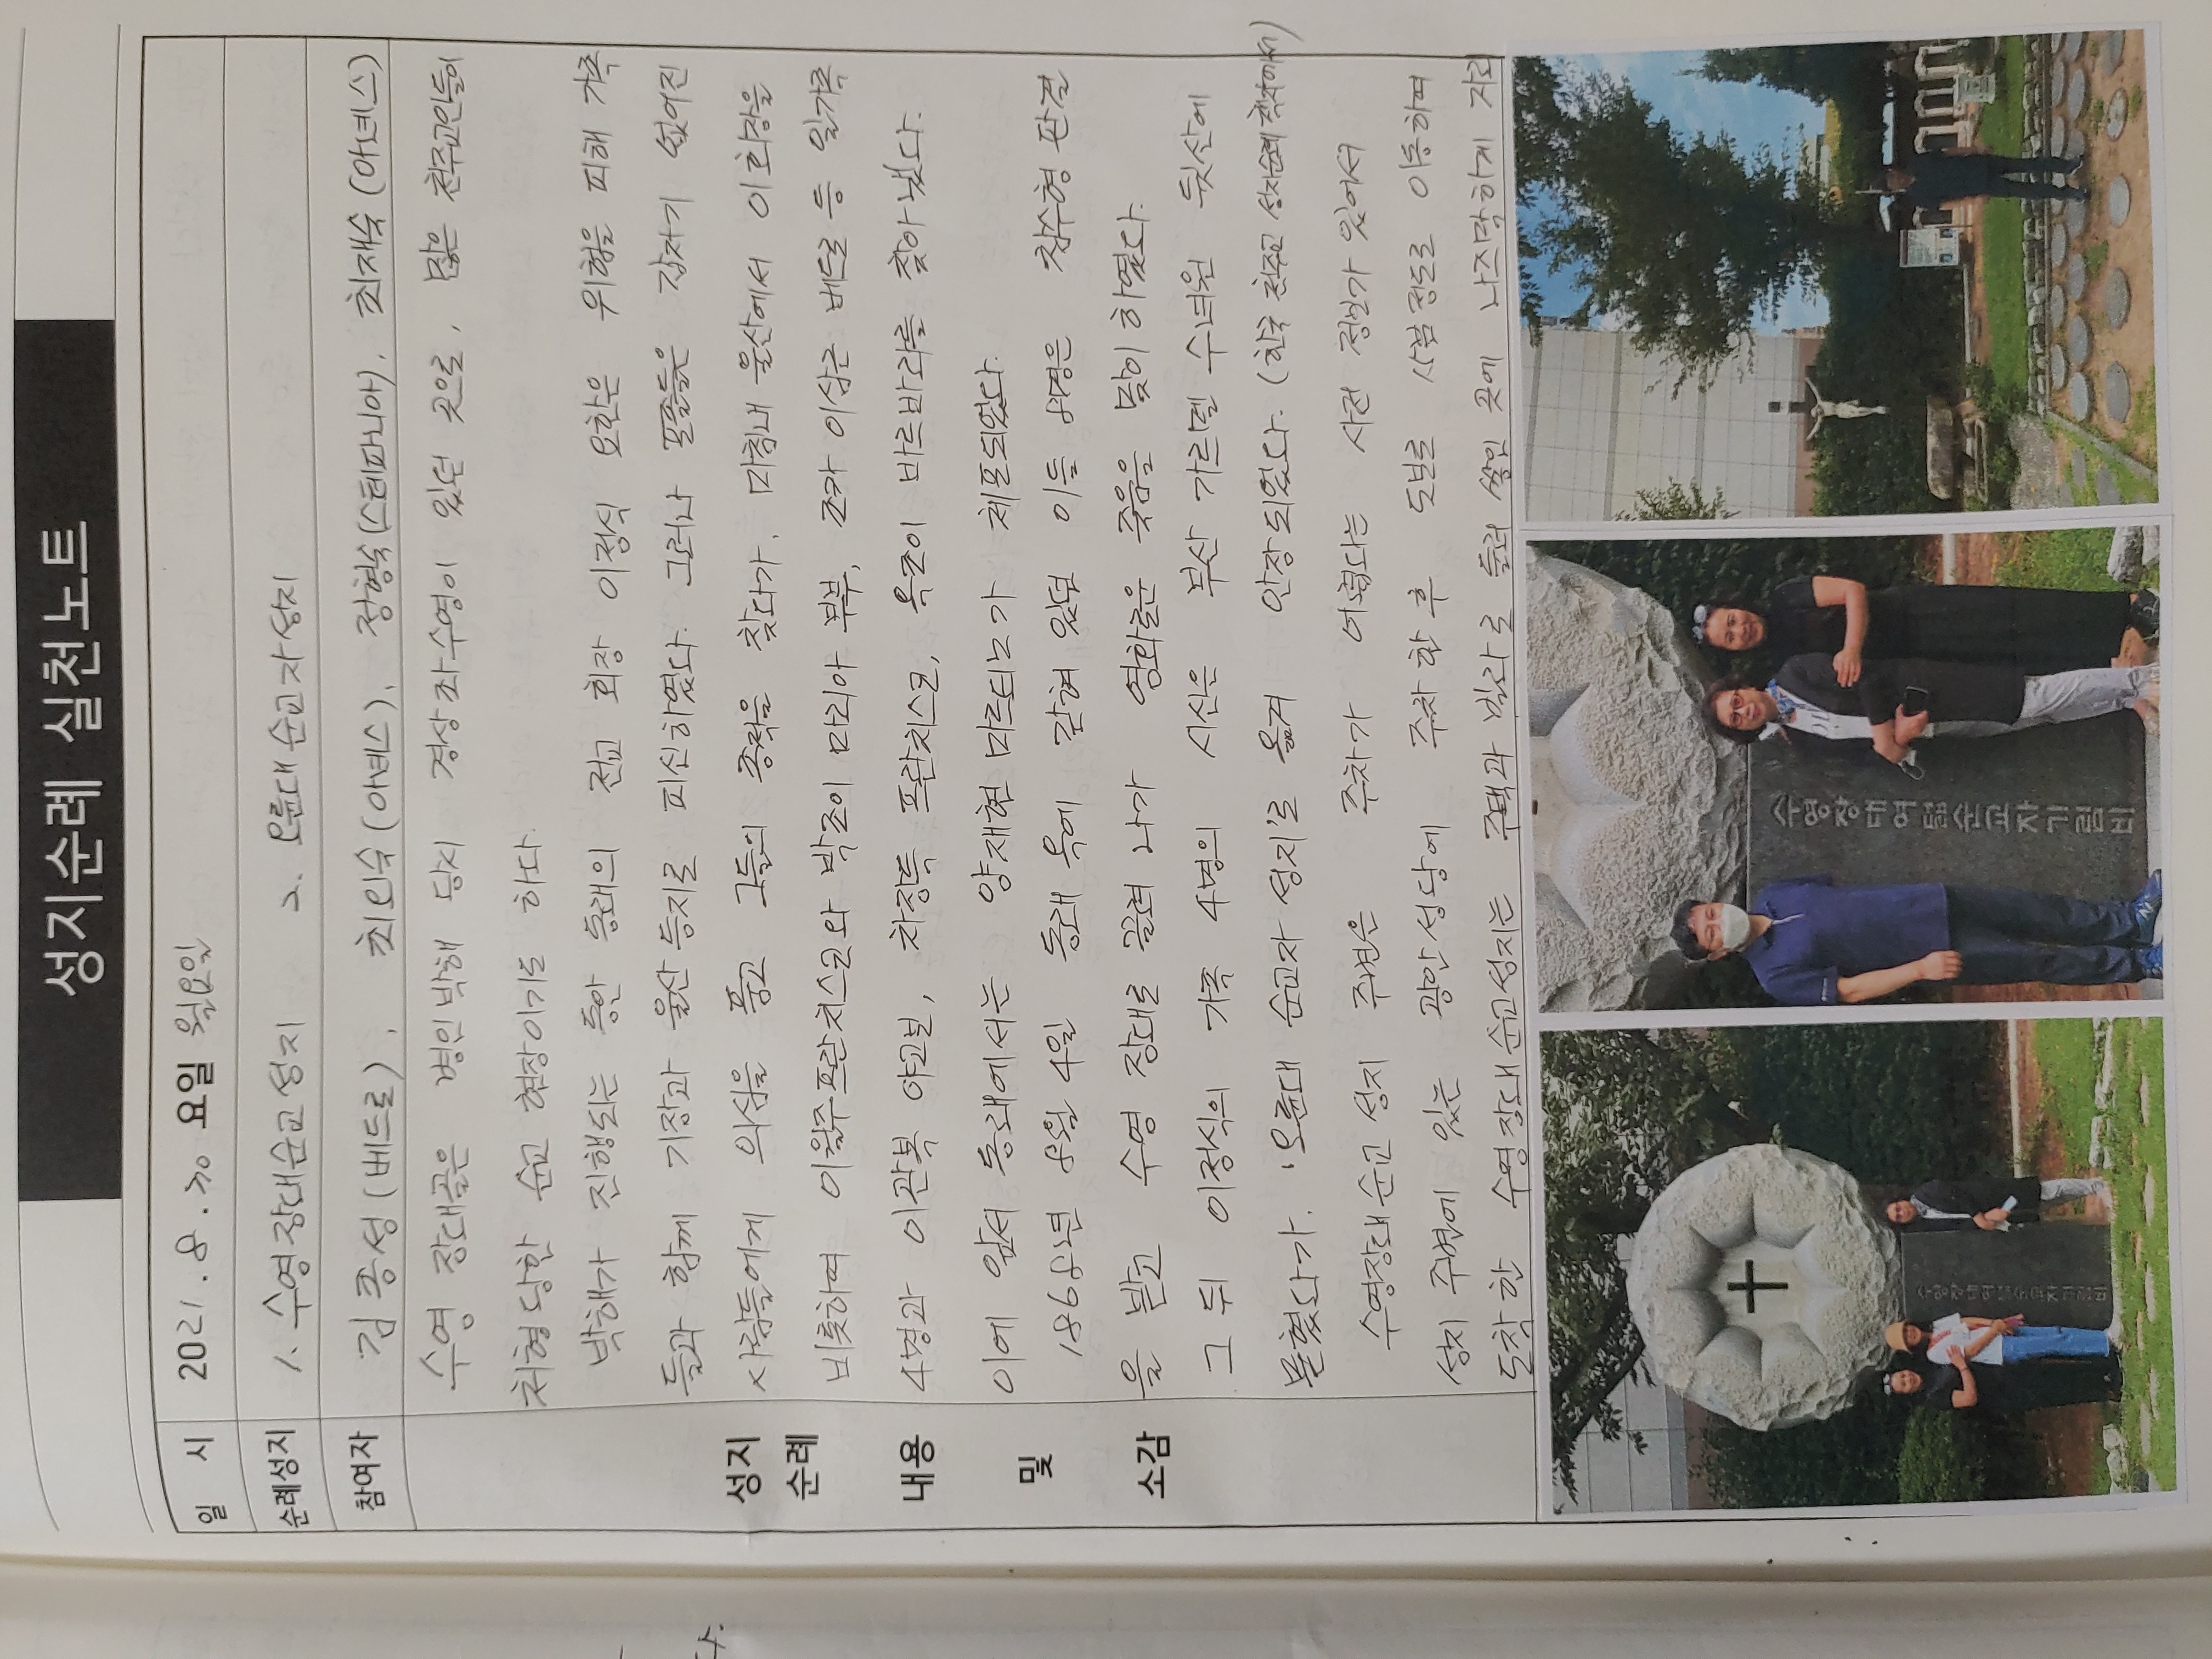 성지순례 실천노트
일 시 2021. 8. 30 요일 월요일
순례성지 1. 수영장대순교성지 2. 오륜대순교자성지
참여자 김종성(베드로), 최외숙(아녜스), 정형숙(스테파니아), 최재숙(아녜스)
수영 장대골은 병인박해 당시 경상좌수영이 있던 곳으로, 많은 천주교인들이
처형당한 순교 현장이기도 하다.
박해가 진행되는 동안 동래의 전교 회장 이정식 요한은 위험을 피해 가족
들과 함께 기장과 울산 등지로 피신하였다. 그러나 포졸들은 갑자기 없어진
사람들에게 의심을 품고 그들의 종적을 찾다가, 마침내 울산에서 이회장을
비롯하여 이월주프란치스코와 박조이 마리아 부부, 조카 이삼근 베드로 등 일가족
4명과 이관복 야고보, 차장득 프란치스코, 옥조이 바르바라를 찾아냈다.
이에 앞서 동래에서는 양재현 마르티노가 체포되었다.
1868년 8월 4일 동래 옥에 갇혀 있던 이들 8명은 참수형 판결
을 받고 수영 장대로 끌려 나가 영화로운 죽음을 맞이하였다.
그 뒤 이정식의 가족 4명의 시신은 부산 가르멜 수녀원 뒷산에
묻혔다가. '오륜대 순교자 성지'로 옮겨 안장되었다. (한국 천주교 성지순례 책자에서)
수영장대순교 성지 주변은 주차가 어렵다는 사전 정보가 있어서
성지 주변에 있는 광안성당에 주차한 후 도보로 15분정도로 이동하여
도착한 수영장대순교성지는 주택과 빌라로 둘러 쌓인 곳에 나즈막하게 자리
성지
순례
내용
및
소감
수영장대여덟순교자기림비
수영장대여덟순교자기림비